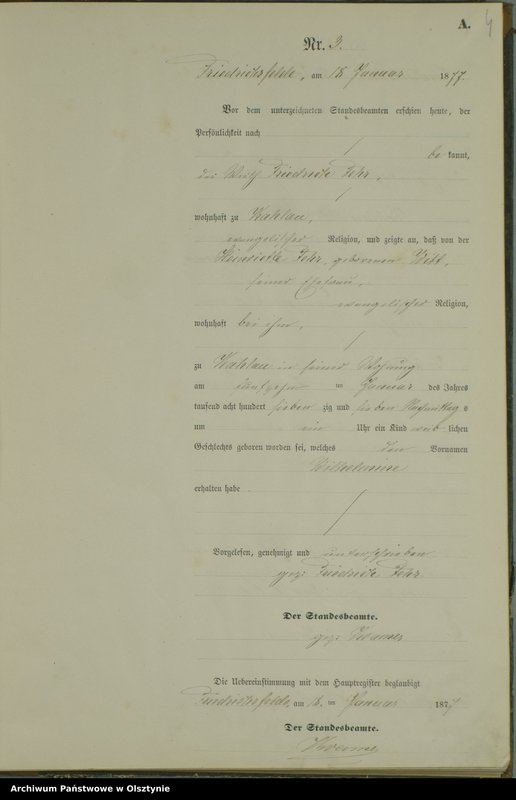 A. 4
Nr. 3.
Friedrichsfelde, am 18. Januar 1877.
Vor dem unterzeichneten Standesbeamten erschien heute, der
Persönlichkeit nach
be kannt,
der Wirth Friedrich
wohnhaft zu
evangelischer Religion, und zeigte an, daß von der
geborenen Witt,
seiner Ehefrau,
evangelischer Religion,
wohnhaft bei ihm,
zu in seiner Wohnung
am ten Januar des Jahres
tausend acht hundert sieben zig und sieben Nachmittag s
um ein Uhr ein Kind weib lichen
Geschlechts geboren worden sei, welches den Vornamen
Wilhelmine
erhalten habe
Vorgelesen, genehmigt und unterschrieben
gez: Friedrich
Der Standesbeamte.
gez:
Die Uebereinstimmung mit dem Hauptregister beglaubigt
Friedrichsfelde, am 18. ten Januar 1877
Der Standesbeamte.
Archiwum Państwowe w Olsztynie